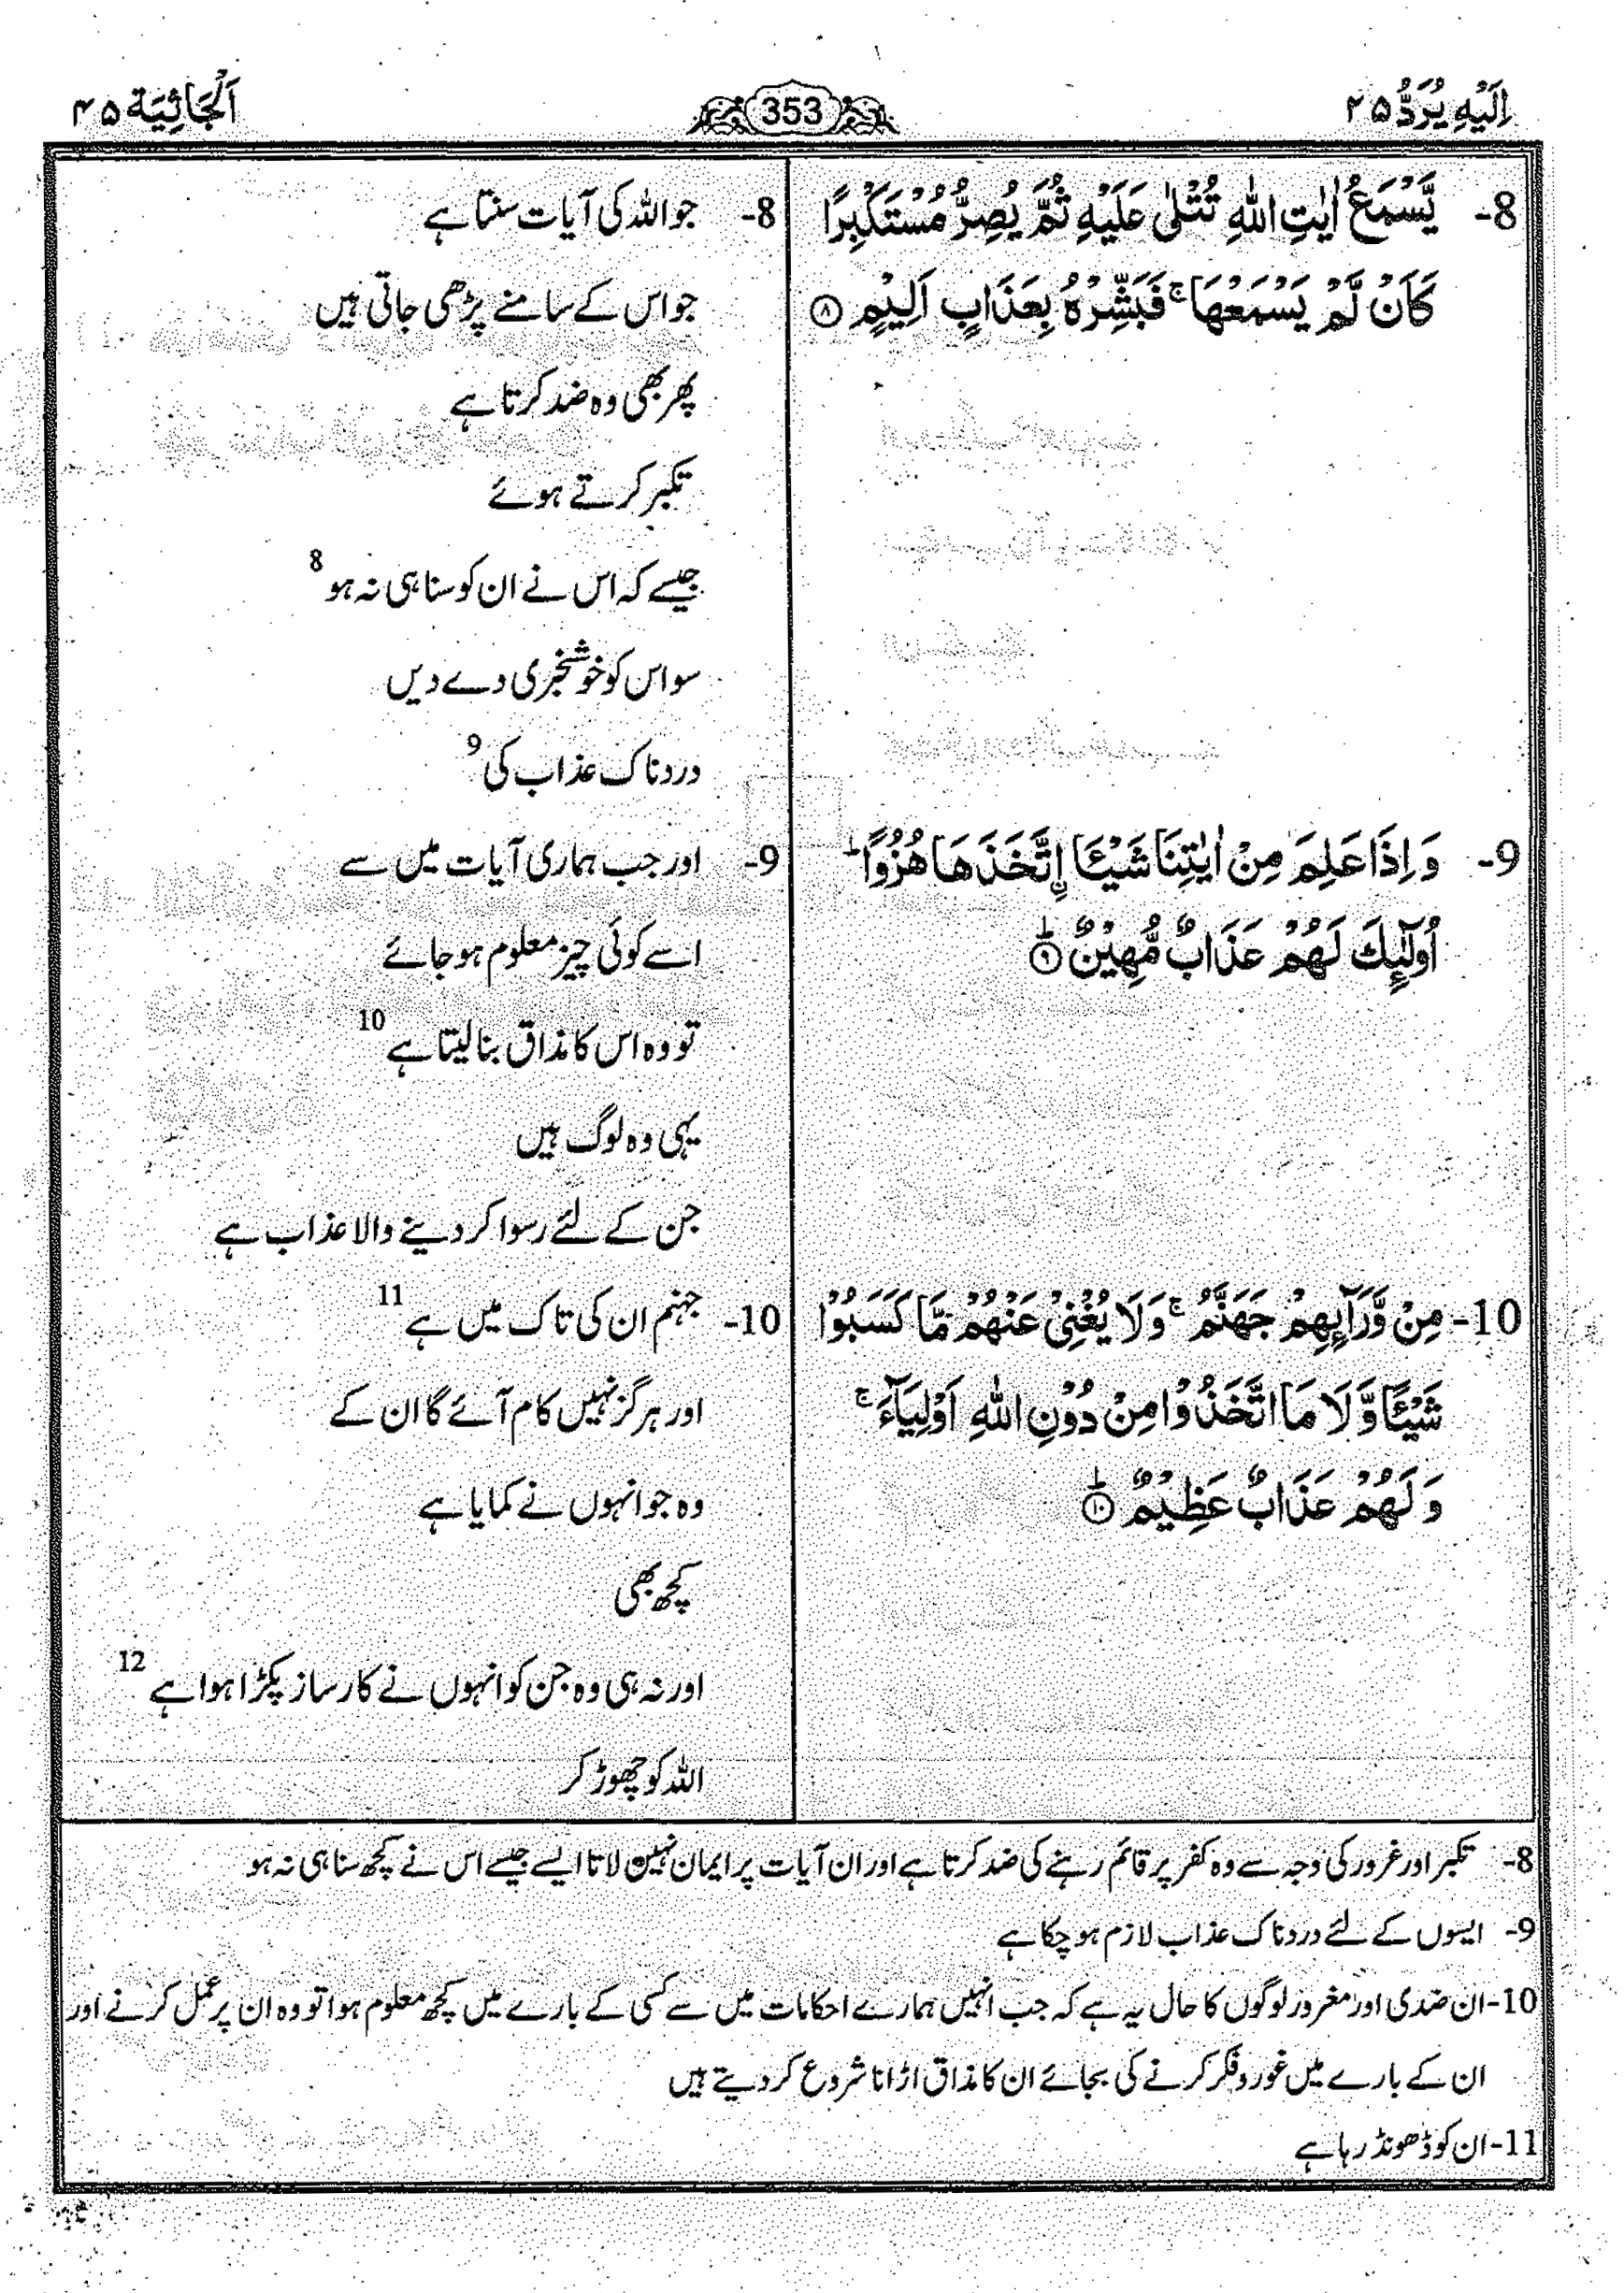 اِلَيْهِ يُرَدُّ ۲۵
353
اَلْجَاثِيَة ۴۵
8- يَّسْمَعُ اٰيٰتِ اللّٰهِ تُتْلٰى عَلَيْهِ ثُمَّ يُصِرُّ مُسْتَكْبِرًا
كَاَنْ لَّمْ يَسْمَعْهَا ۚ فَبَشِّرْهُ بِعَذَابٍ اَلِيْمٍ ۝۸
9- وَ اِذَا عَلِمَ مِنْ اٰيٰتِنَا شَيْـًٔا اِۨتَّخَذَهَا هُزُوًا ؕ
اُولٰٓئِكَ لَهُمْ عَذَابٌ مُّهِيْنٌ ۝۹ؕ
10- مِنْ وَّرَآئِهِمْ جَهَنَّمُ ۚ وَلَا يُغْنِيْ عَنْهُمْ مَّا كَسَبُوْا
شَيْـًٔا وَّلَا مَا اتَّخَذُوْا مِنْ دُوْنِ اللّٰهِ اَوْلِيَآءَ ۚ
وَ لَهُمْ عَذَابٌ عَظِيْمٌ ۝۱۰ؕ
8- جو اللہ کی آیات سنتا ہے
جو اس کے سامنے پڑھی جاتی ہیں
پھر بھی وہ ضد کرتا ہے
تکبر کرتے ہوئے
جیسے کہ اس نے ان کو سنا ہی نہ ہو 8
سو اس کو خوشخبری دے دیں
دردناک عذاب کی 9
9- اور جب ہماری آیات میں سے
اسے کوئی چیز معلوم ہو جائے
تو وہ اس کا مذاق بنا لیتا ہے 10
یہی وہ لوگ ہیں
جن کے لئے رسوا کر دینے والا عذاب ہے
10- جہنم ان کی تاک میں ہے 11
اور ہرگز نہیں کام آئے گا ان کے
وہ جو انہوں نے کمایا ہے
کچھ بھی
اور نہ ہی وہ جن کو انہوں نے کارساز پکڑا ہوا ہے 12
اللہ کو چھوڑ کر
8- تکبر اور غرور کی وجہ سے وہ کفر پر قائم رہنے کی ضد کرتا ہے اور ان آیات پر ایمان نہیں لاتا ایسے جیسے اس نے کچھ سنا ہی نہ ہو
9- ایسوں کے لئے دردناک عذاب لازم ہو چکا ہے
10- ان ضدی اور مغرور لوگوں کا حال یہ ہے کہ جب انہیں ہمارے احکامات میں سے کسی کے بارے میں کچھ معلوم ہوا تو وہ ان پر عمل کرنے اور
ان کے بارے میں غور و فکر کرنے کی بجائے ان کا مذاق اڑانا شروع کر دیتے ہیں
11- ان کو ڈھونڈ رہا ہے